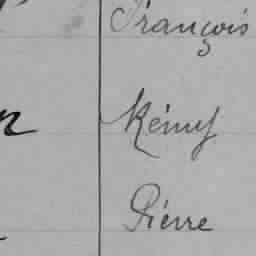 François
Rémy
Pierre